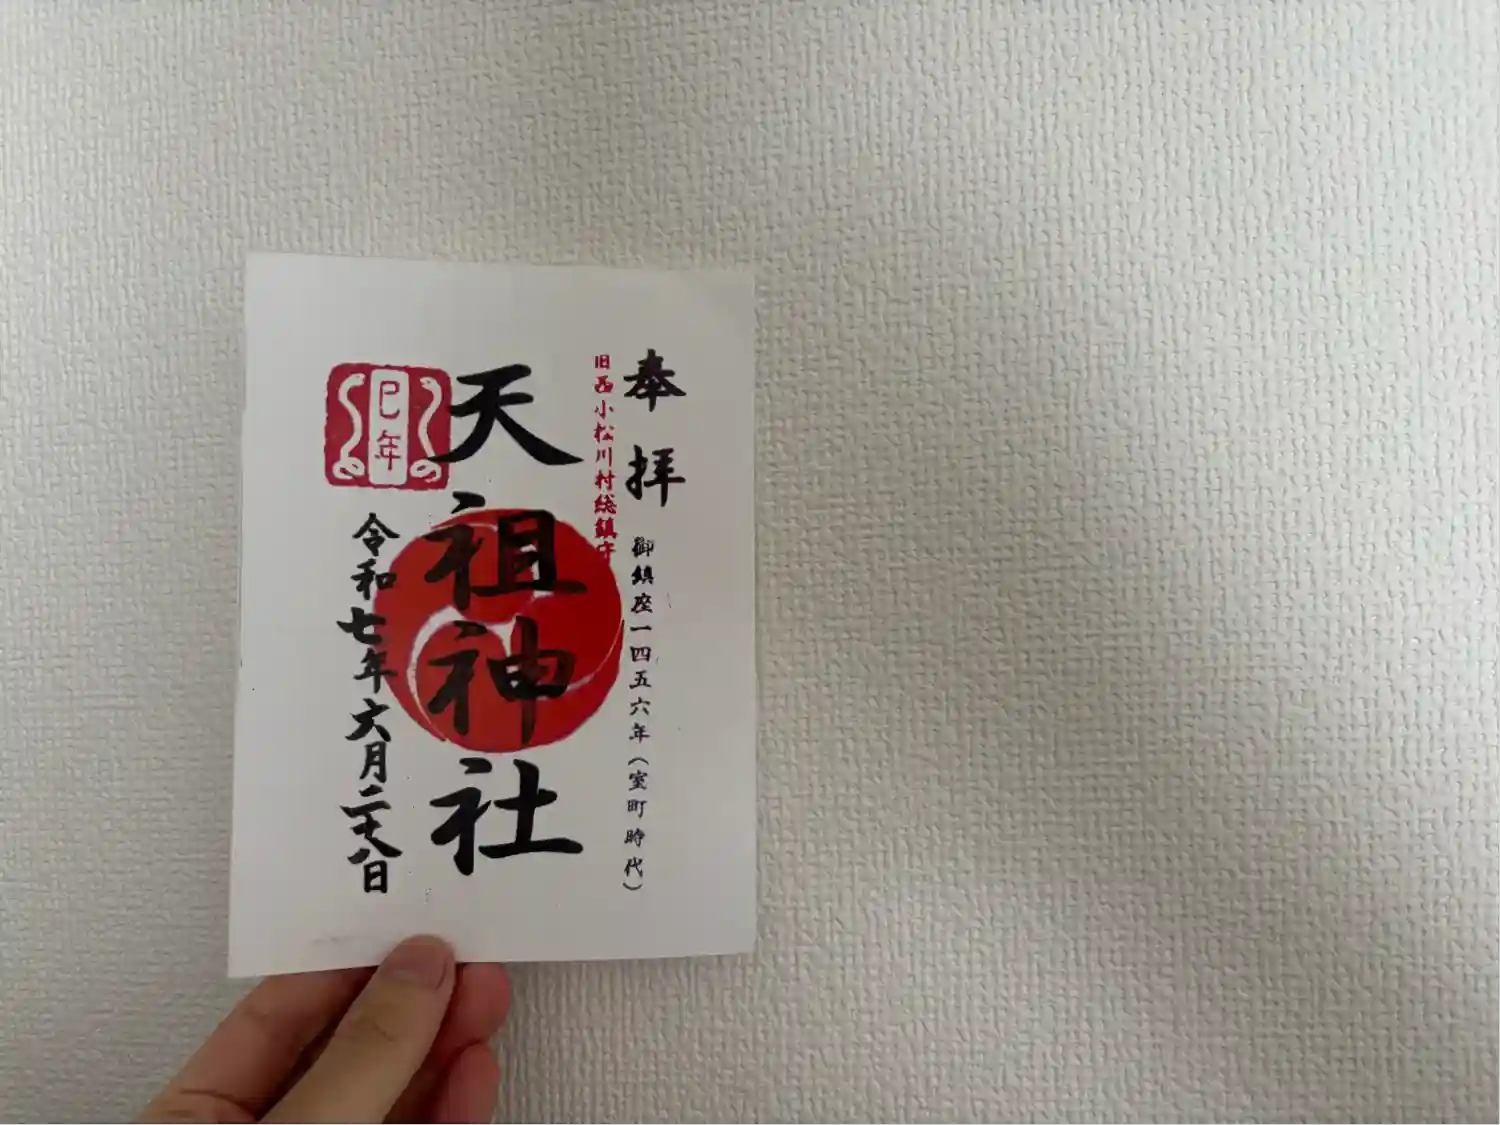 奉拝
御鎮座一四五六年(室町時代)
旧西小松川村総鎮守
天祖神社
巳年
令和七年六月二十八日